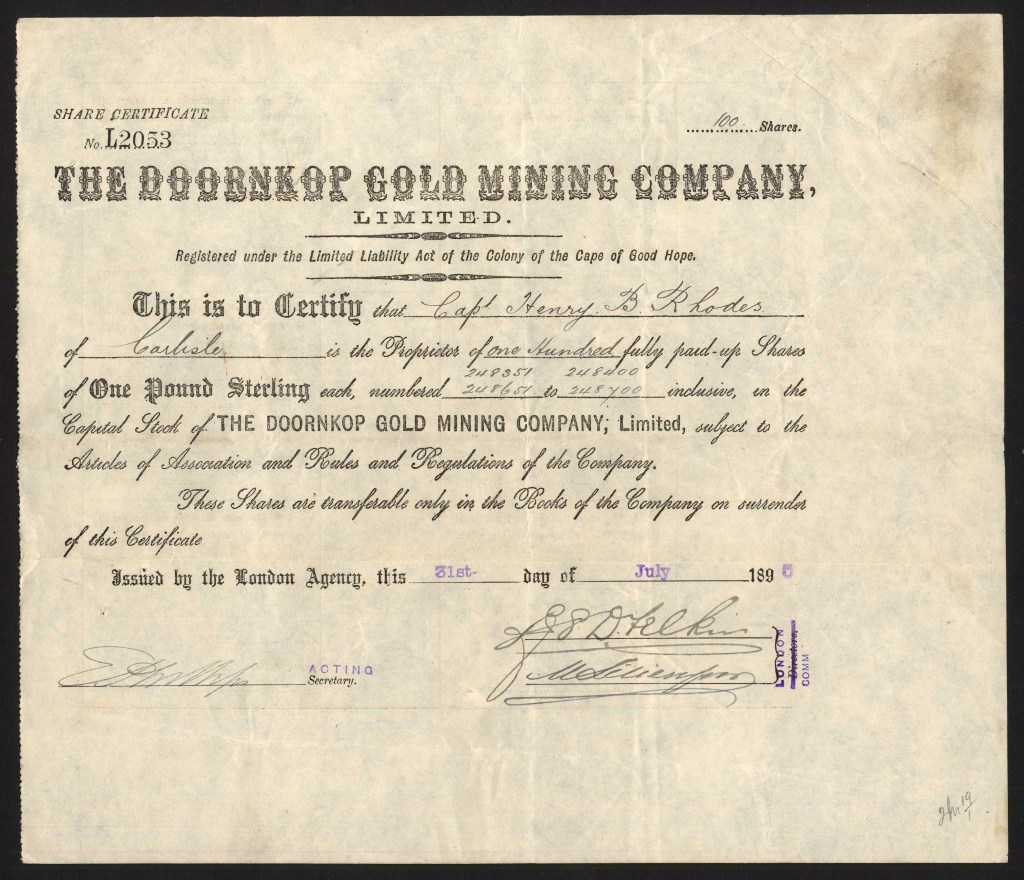 SHARE CERTIFICATE
No. L2053
100 Shares.
THE DOORNKOP GOLD MINING COMPANY,
LIMITED.
Registered under the Limited Liability Act of the Colony of the Cape of Good Hope.
This is to Certify that Capt Henry B. Rhodes
of Carlisle is the Proprietor of one Hundred fully paid-up Shares
248351 248400
of One Pound Sterling each, numbered 248651 to 248700 inclusive, in the
Capital Stock of THE DOORNKOP GOLD MINING COMPANY, Limited, subject to the
Articles of Association and Rules and Regulations of the Company.
These Shares are transferable only in the Books of the Company on surrender
of this Certificate
Issued by the London Agency, this 31st day of July 1895
ACTING
Secretary.
LONDON
Directors,
COMM